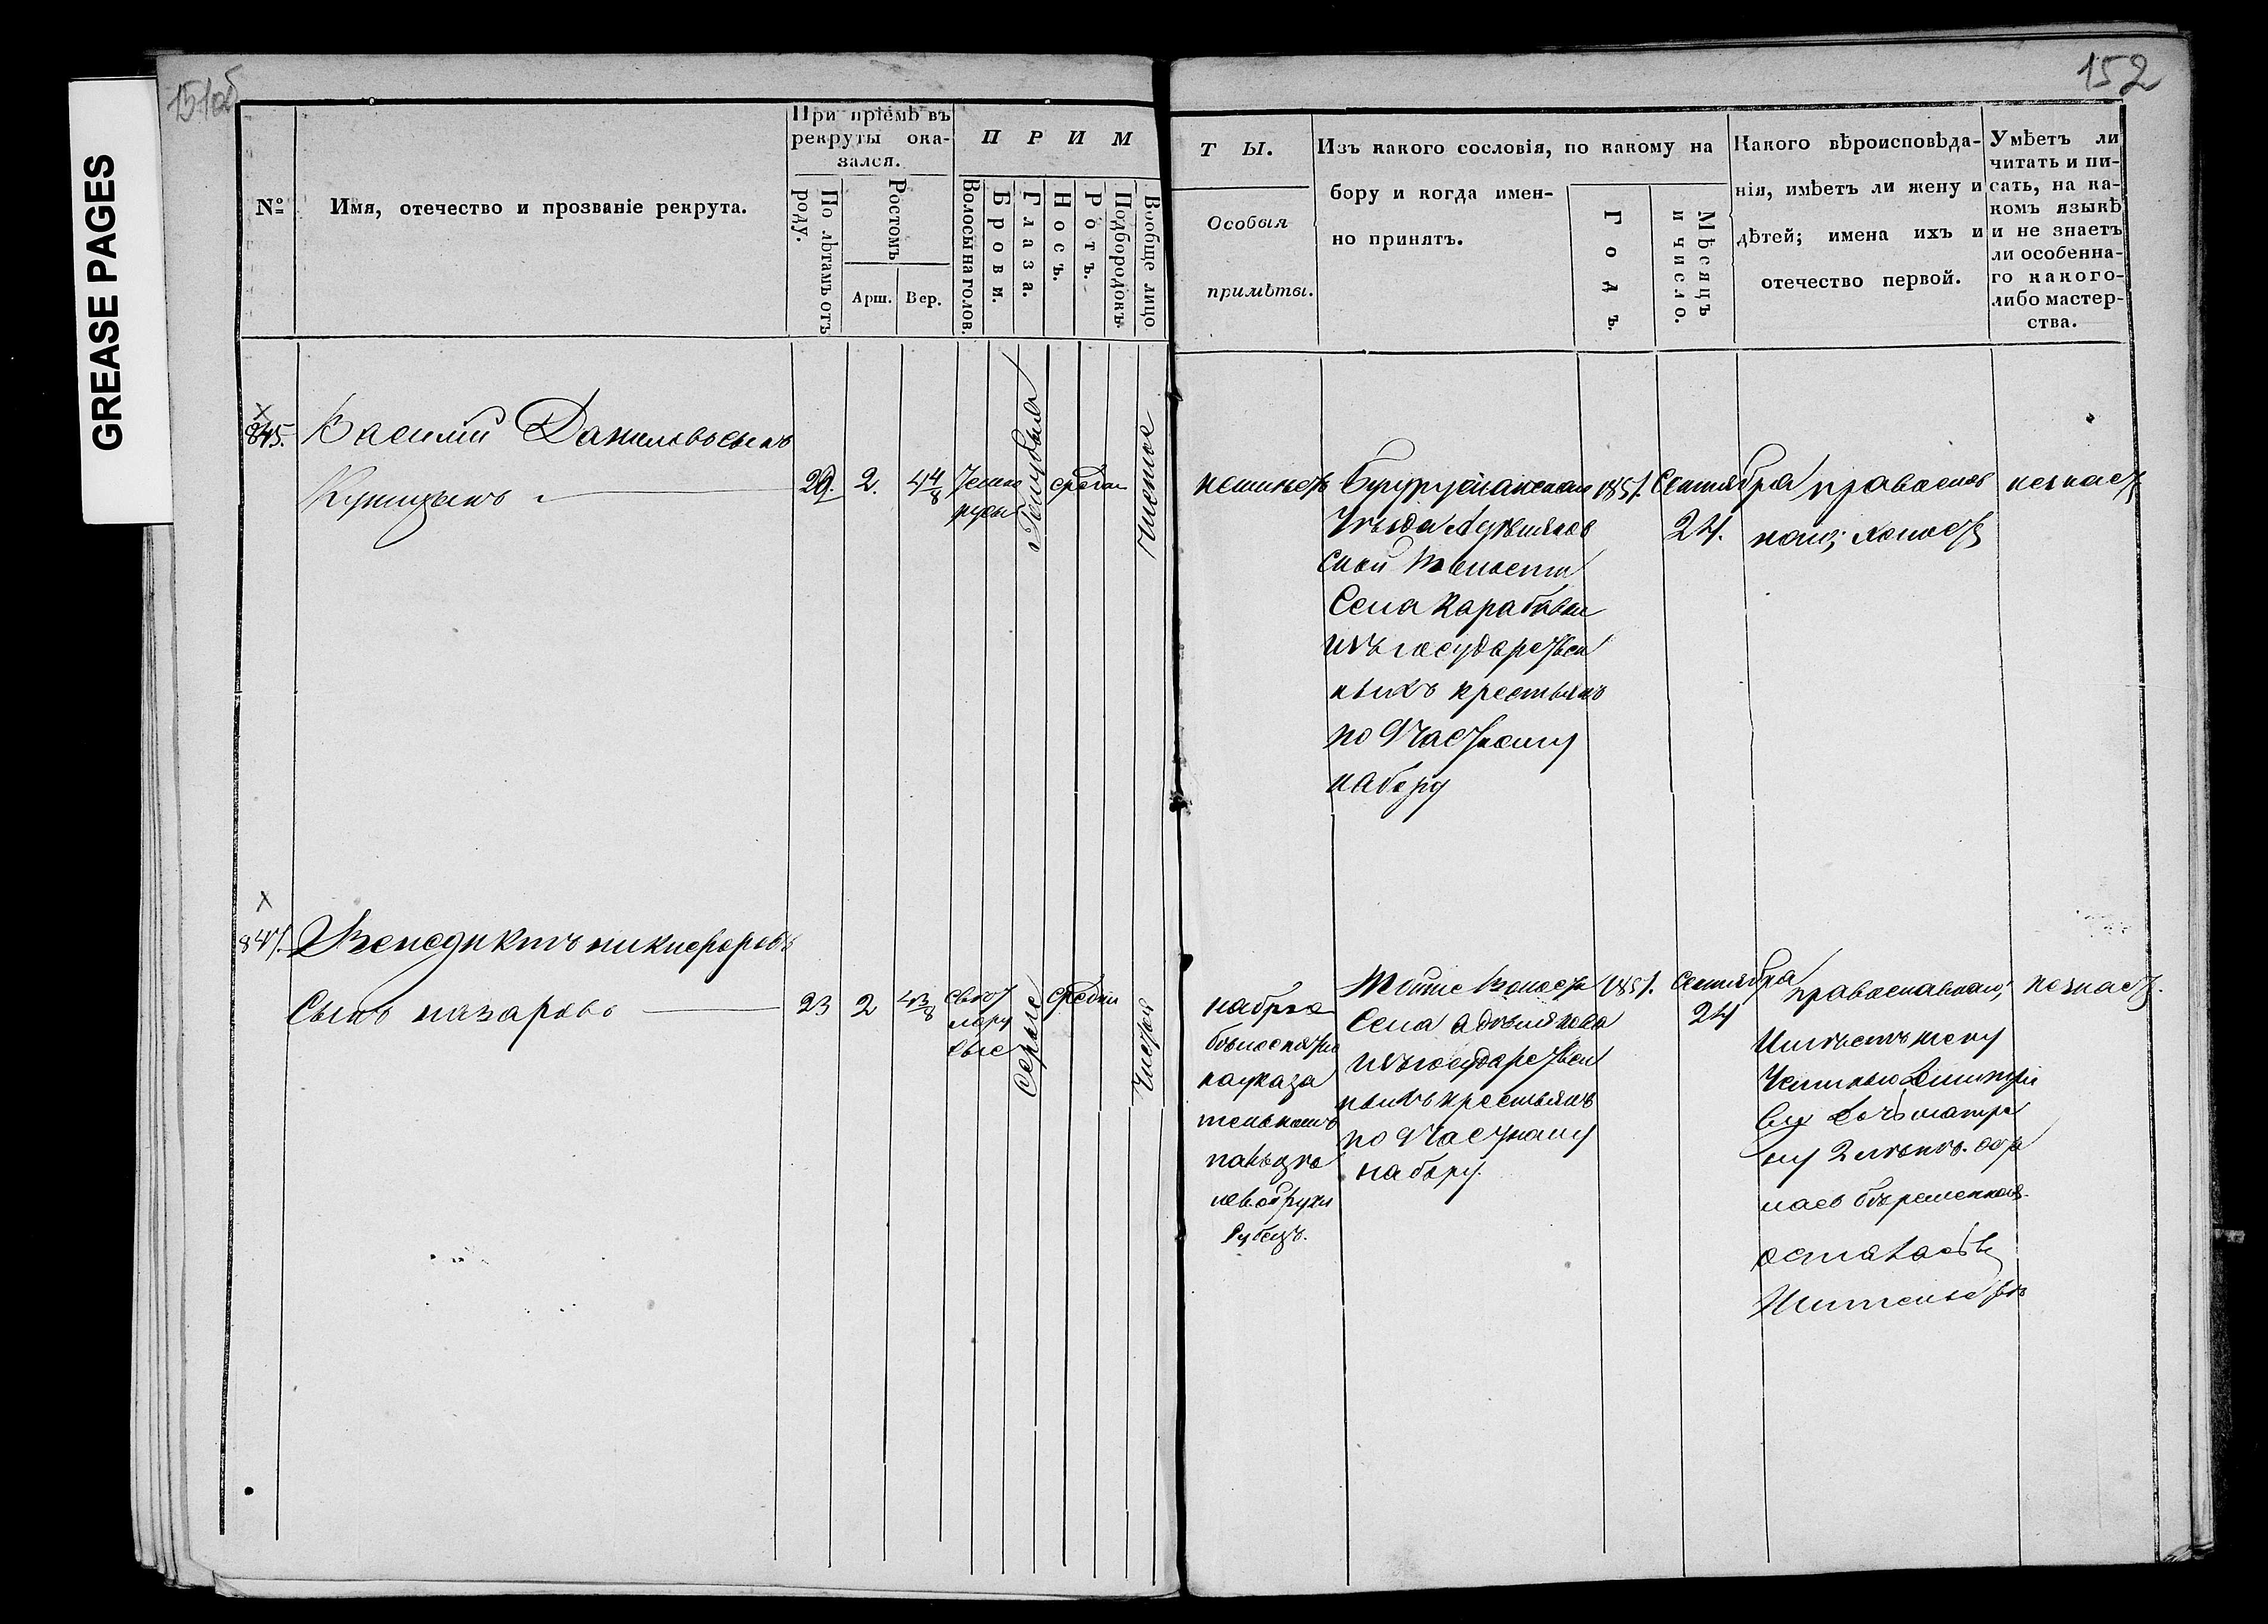 GREASE PAGES
151об
152
№
Имя, отечество и прозваніе рекрута.
При пріемѣ въ
рекруты ока-
зался.
По лѣтамъ отъ
роду.
Ростомъ
Арш. Вер.
П Р И М
Волосы на голов.
Брови.
Глаза.
Носъ.
Ротъ.
Подбородокъ.
Вообще лицо
Т Ы.
Особыя
примѣты.
Изъ какого сословія, по какому на
бору и когда имен-
но принятъ.
Годъ.
Мѣсяцъ
и число.
Какого вѣроисповѣда-
нія, имѣетъ ли жену и
дѣтей; имена ихъ и
отечество первой.
Умѣетъ ли
читать и пи-
сать, на ка-
комъ языкѣ
и не знаетъ
ли особенна-
го какого-
либо мастер-
ства.
845.
Василій Даниловъ сынъ
Купцынъ
29. 2. 4 4/8
Темно
русы
Голубые
средни
Чистое
неимѣетъ
Бугурусланскаго
Уѣзда
ской волости
Села Карабаевки
изъ государствен
ныхъ крестьянъ
по 9 частному
набору
1851. Сентября
24.
православ
наго, холостъ
незнаетъ
847.
Венедиктъ никифоровъ
Сынъ назаровъ
23 2 4 3/8
свет
лору
сые
Серые
средни
Чистое
на
указа
тельномъ
пальцѣ
левой руки
рубецъ.
Тойже Волости
Села
изъ государствен
ныхъ крестьянъ
по 9 частному
набору.
1851. Сентября
24
православнаго,
Имѣетъ жену
дочь матре
ну 2 лѣтъ.
беременная.
незнаетъ.